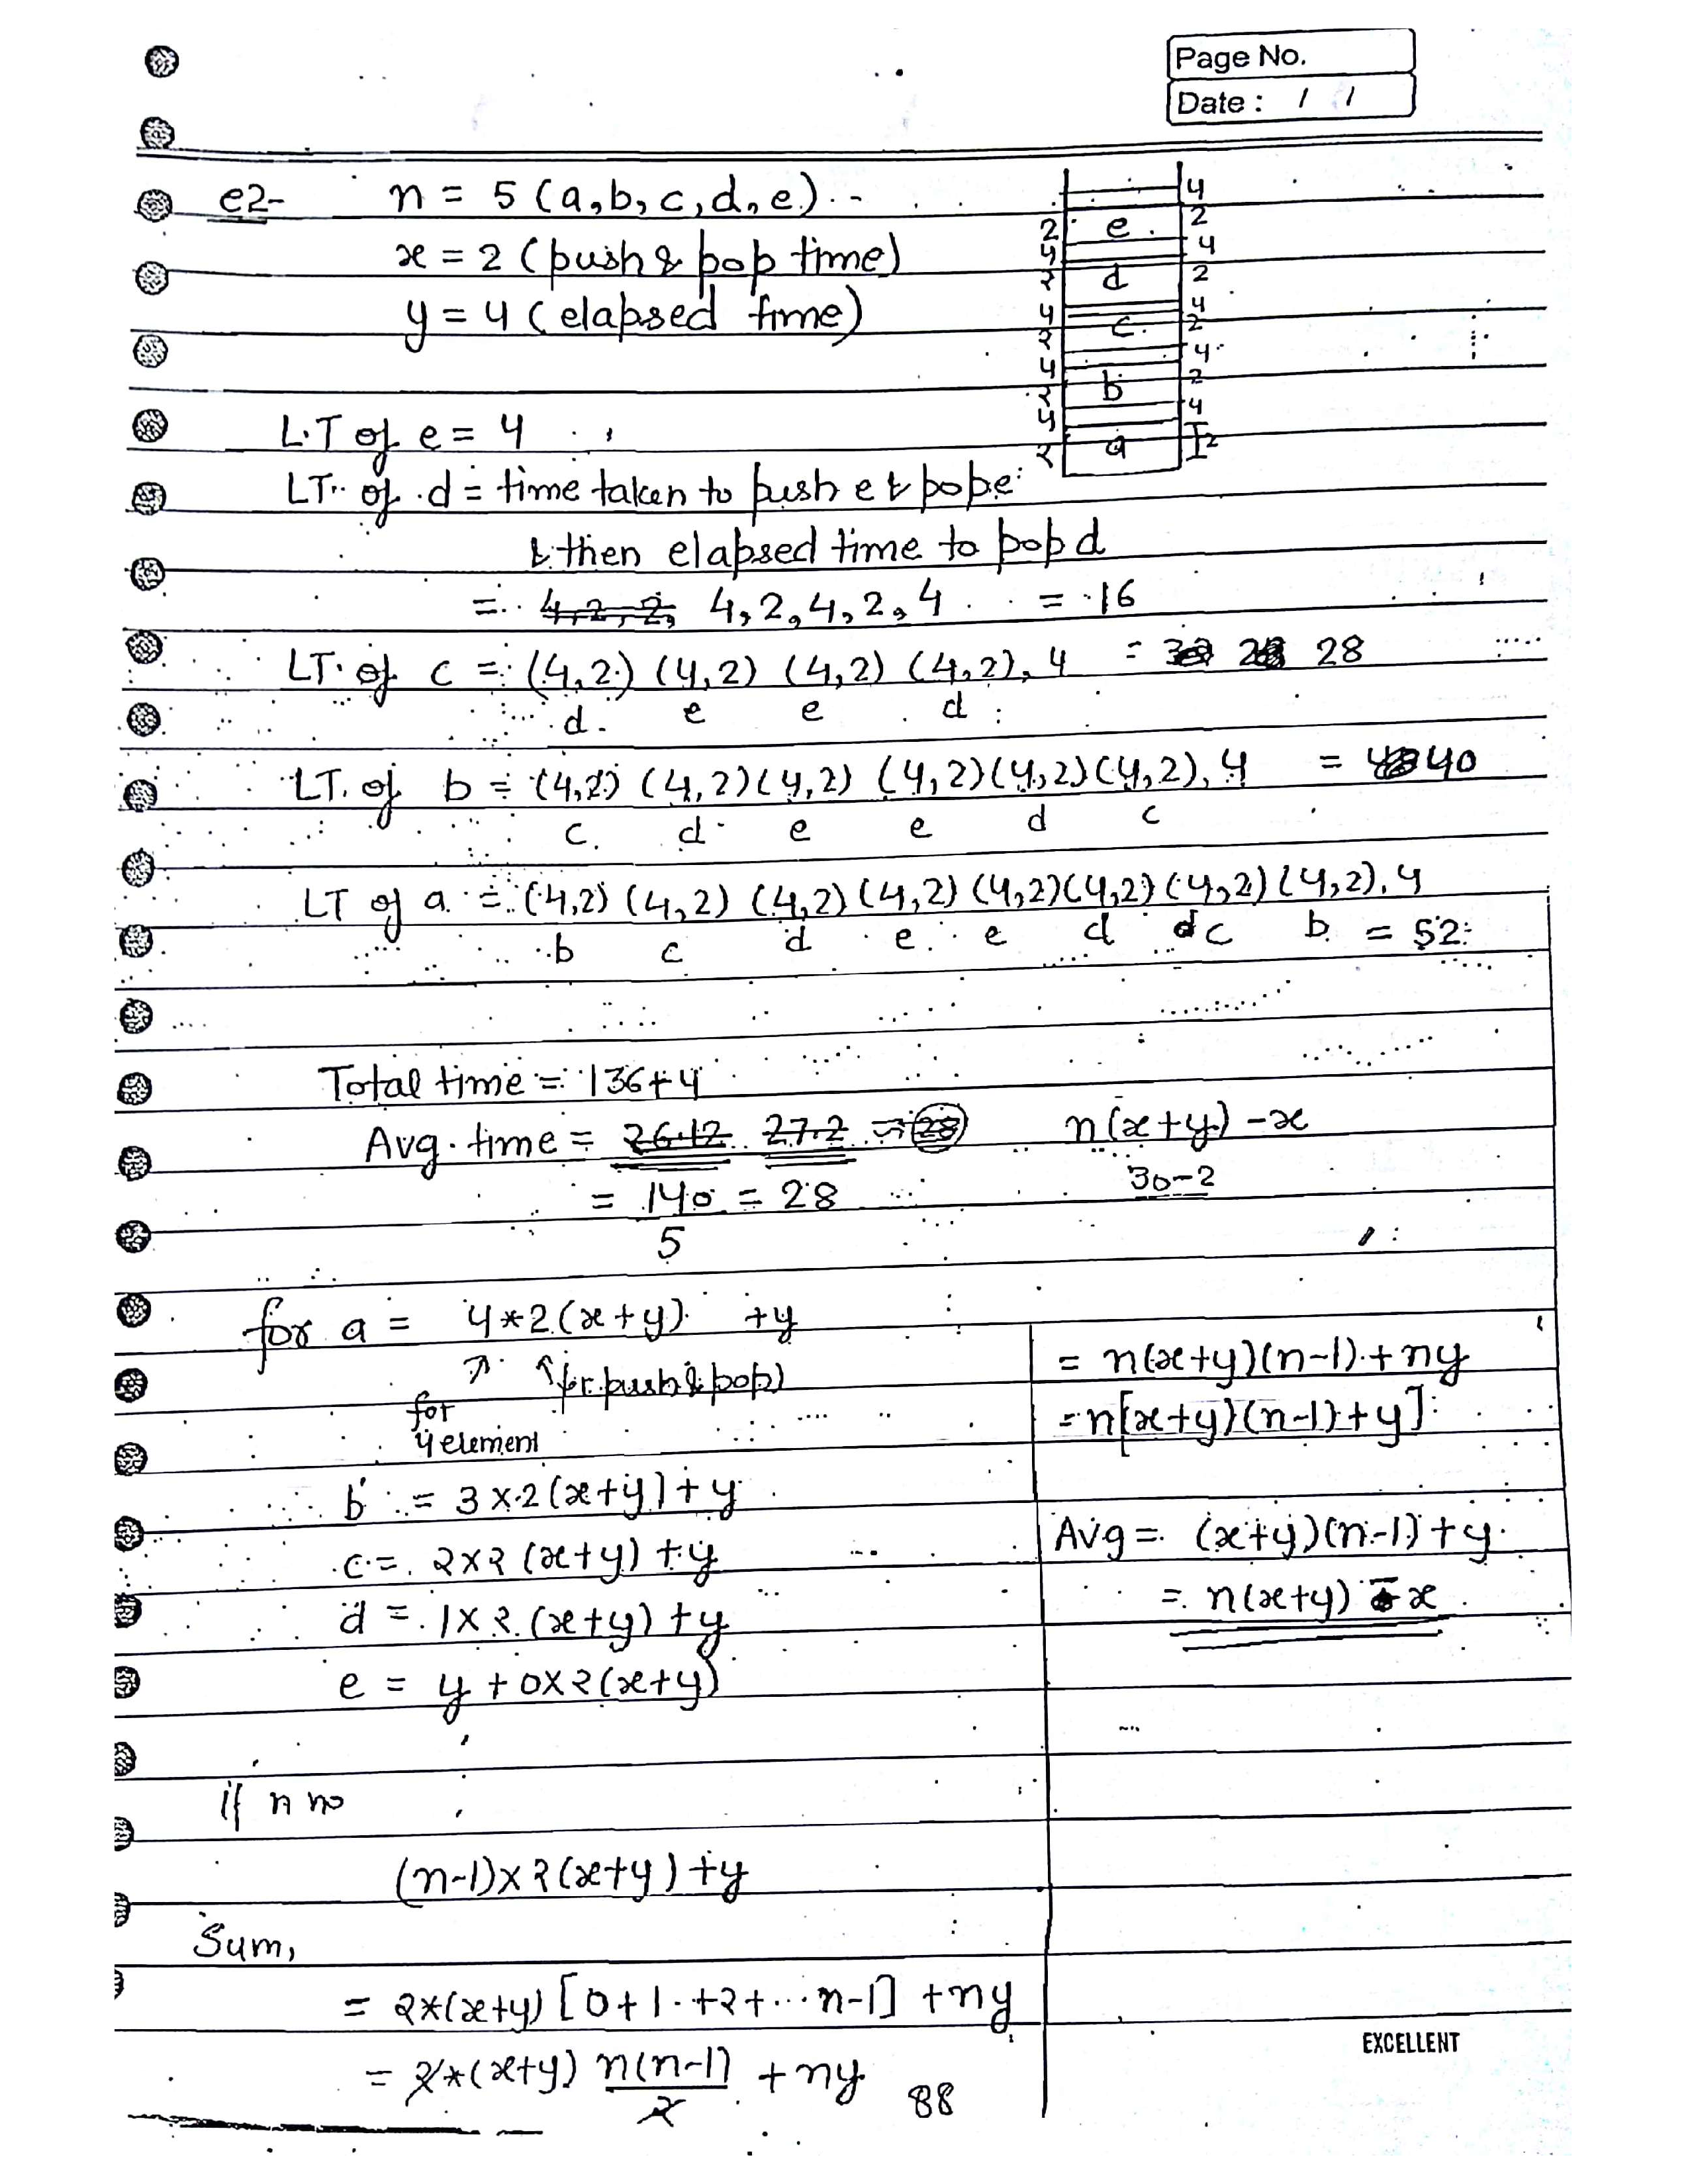 Page No.
Date : / /
e2- n = 5 (a,b,c,d,e)
x = 2 (push & pop time)
y = 4 (elapsed time)
4
2 e 2
4 4
2 d 2
4 4
2 c 2
4 4
2 b 2
4 4
2 a 2
L.T of e = 4
LT of d = time taken to push e & pop e
& then elapsed time to pop d
= 4,2,2, 4,2,4,2,4 = 16
LT of c = (4,2) (4,2) (4,2) (4,2), 4 = 28
d e e d
LT. of b = (4,2) (4,2) (4,2) (4,2) (4,2) (4,2), 4 = 40
c d e e d c
LT of a = (4,2) (4,2) (4,2) (4,2) (4,2) (4,2) (4,2) (4,2), 4
b c d e e d c b = 52
Total time = 136+4
Avg. time = 26.12 27.2 = 28 n(x+y) -x
= 140 = 28 30-2
5
for a = 4*2(x+y) +y
(for push & pop)
for
4 element
b = 3x2(x+y)+y
c = 2x2 (x+y) +y
d = 1x2 (x+y) +y
e = y + 0x2(x+y)
if n no
(n-1)x2(x+y)+y
Sum,
= 2*(x+y) [0+1+2+...n-1] +ny
= 2*(x+y) n(n-1) + ny
2
= n(x+y)(n-1)+ny
= n[x+y)(n-1)+y]
Avg = (x+y)(n-1)+y
= n(x+y) - x
EXCELLENT
88